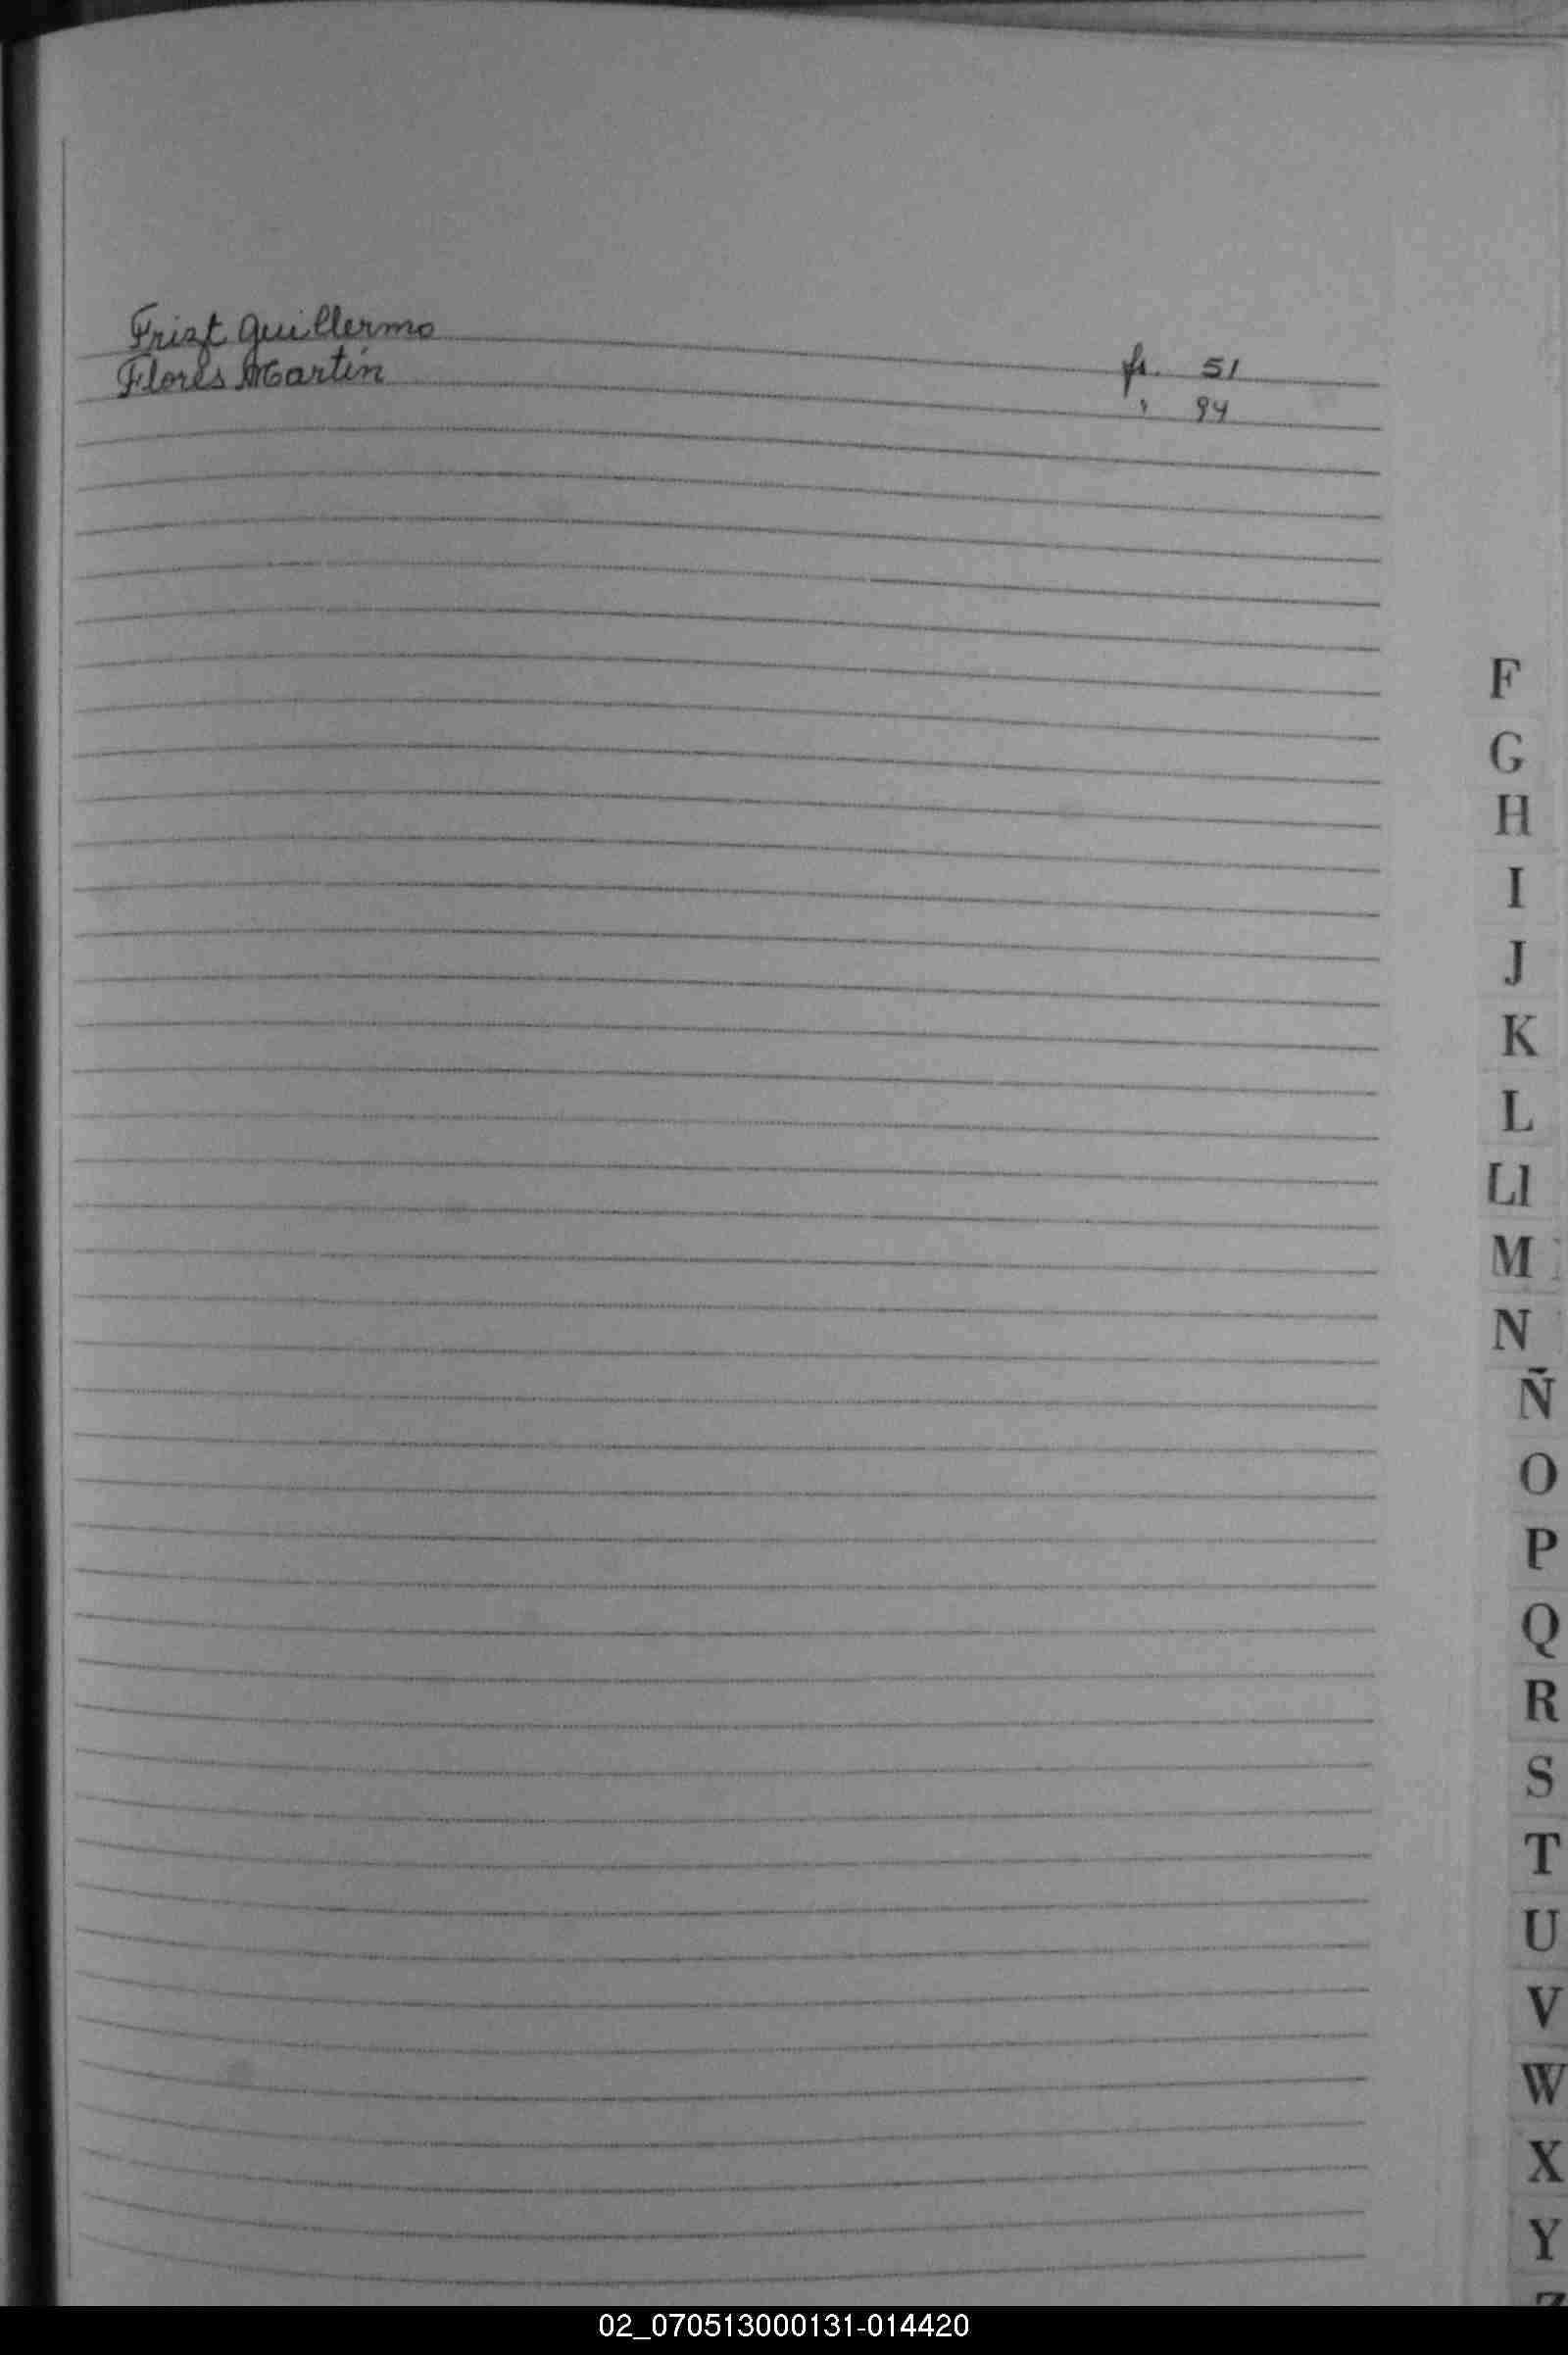 Frizt Guillermo fs. 51
Flores Martín " 94
F
G
H
I
J
K
L
Ll
M
N
Ñ
O
P
Q
R
S
T
U
V
W
X
Y
Z
02_070513000131-014420